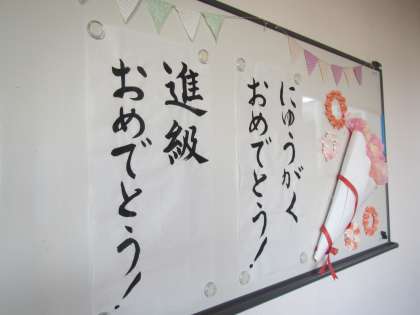 にゅうがく
おめでとう!
進級
おめでとう!